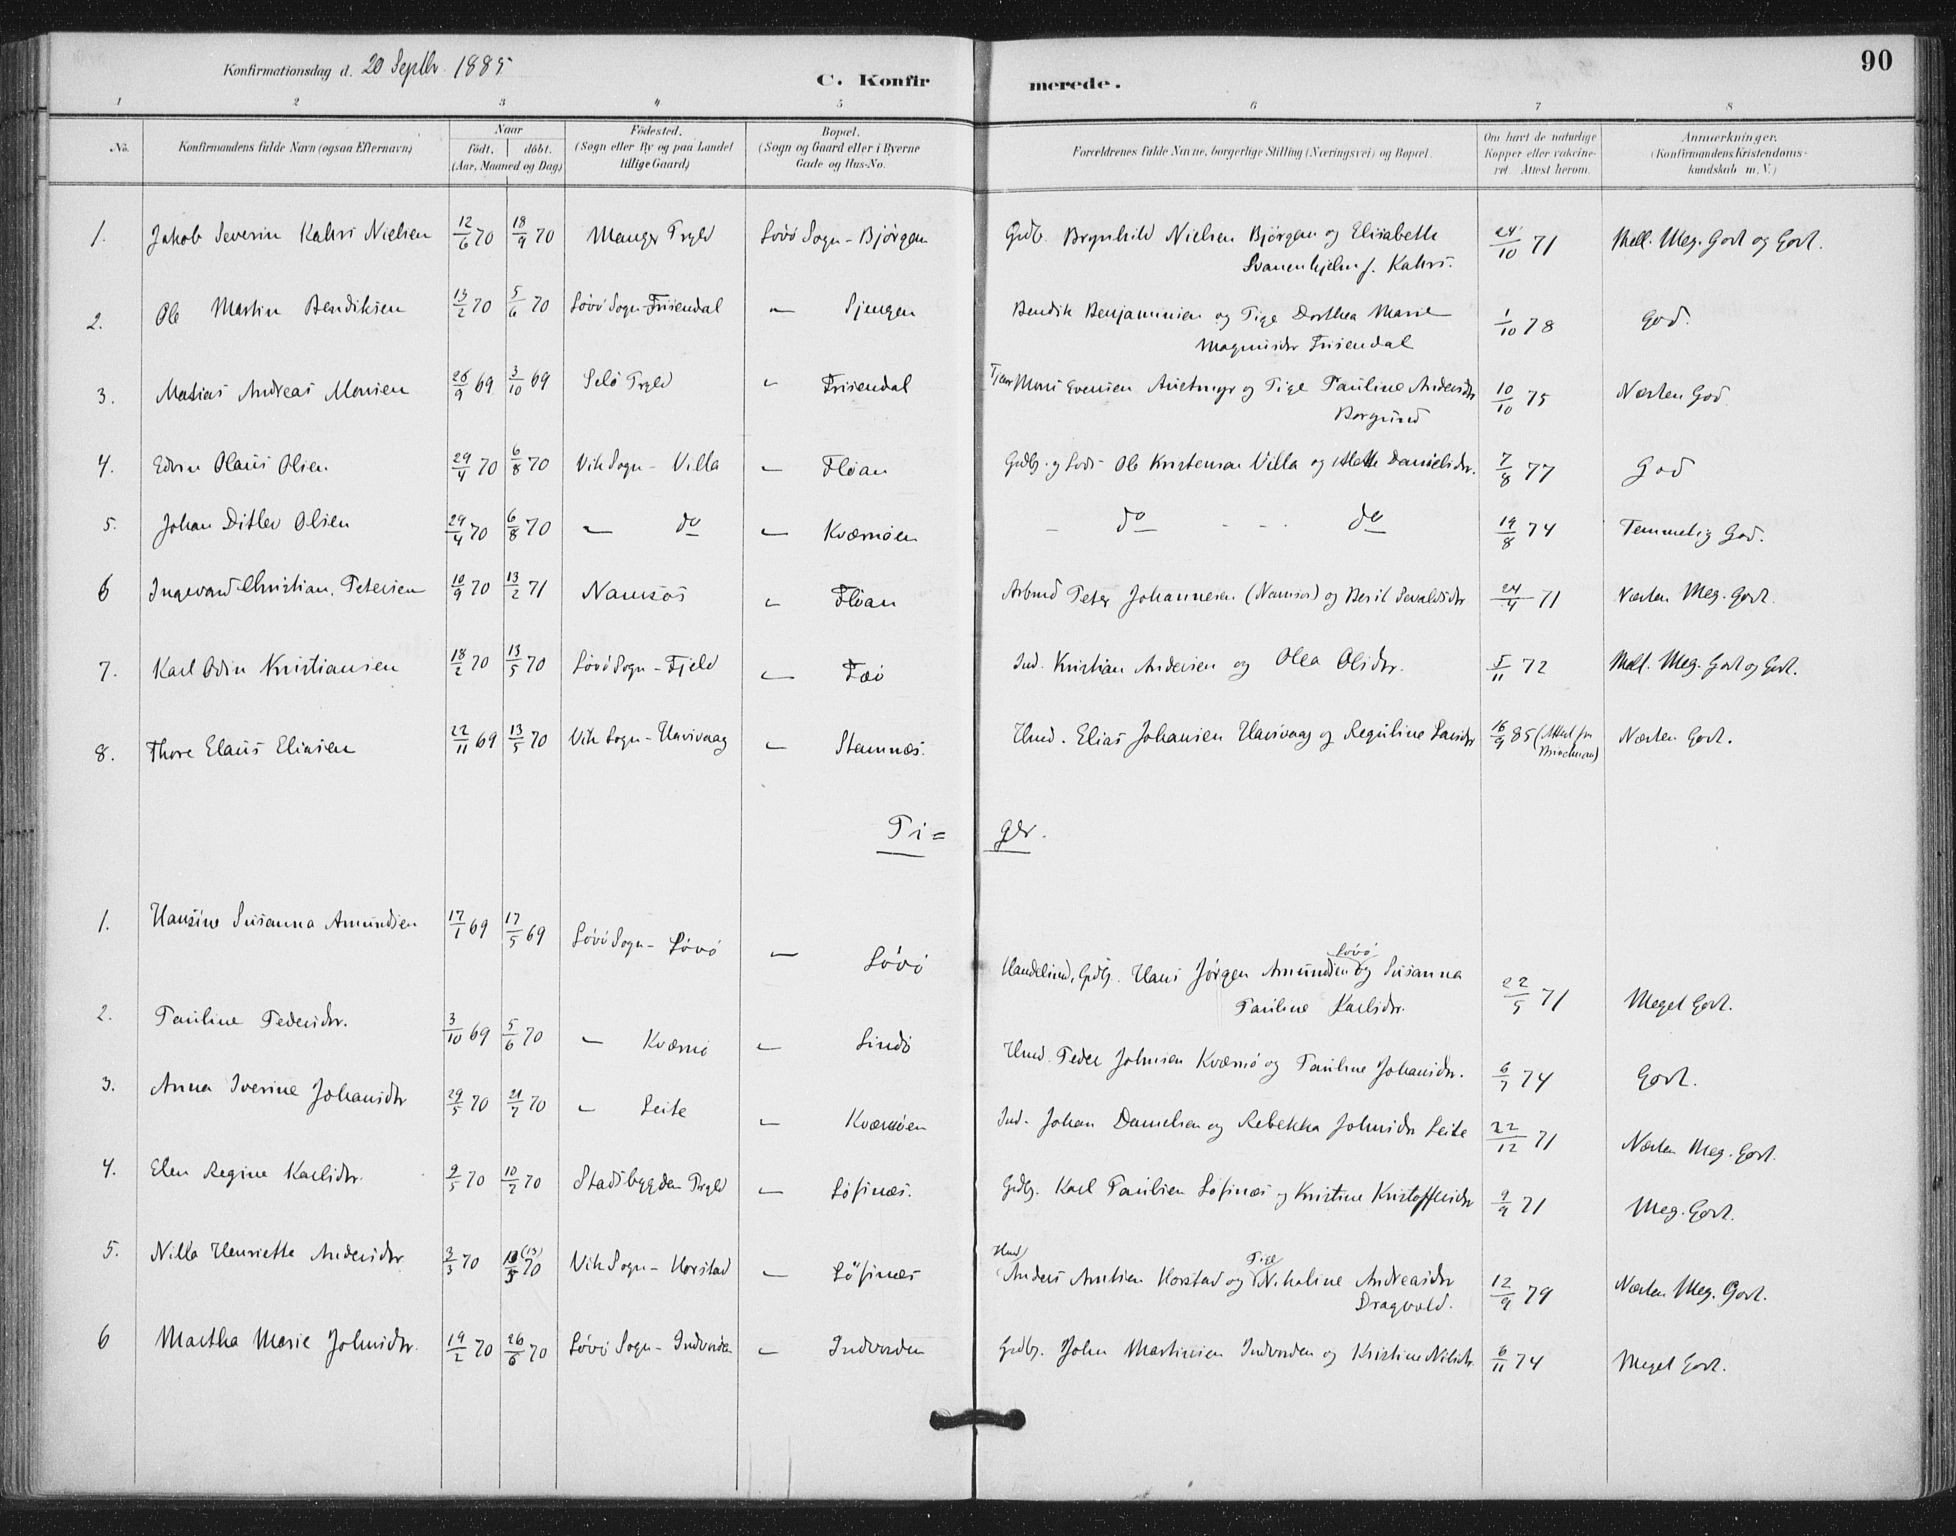 90
Konfirmationsdag d. 20 Septbr. 1885
C. Konfir merede.
1 2 3 4 5 6 7 8
No. Konfirmandens fulde Navn (ogsaa Efternavn) Naar født. døbt. (Aar, Maaned og Dag) Fødested. (Sogn eller By og paa Landet tillige Gaard) Bopæl. (Sogn og Gaard eller i Byerne Gade og Hus-No. Forældrenes fulde Navne, borgerlige Stilling (Næringsvei) og Bopæl. Om havt de naturlige Kopper eller vakcineret. Attest herom. Anmærkninger. (Konfirmandens Kristendomskundskab m. V.)
1. Jakob Severin Kahrs Nielsen 12/6 70 18/9 70 Manger Prgld Løvø Sogn - Bjørgan Grdb. Brynhild Nielsen Bjørgan og Elisabeth 24/10 71 Mell. Meg. Godt og Godt.
Svanenhjelm f. Kahrs.
2. Ole Martin Bendiksen 13/2 70 5/6 70 Løvø Sogn - Friisendal " Sjengen Bendik Benjaminsen og Pige Dorthea Marie 1/10 78 God.
Magnusdtr Friisendal
3. Matias Andreas Monsen 26/9 69 3/10 69 Selø Prgld " Friisendal Tjener Mons Evensen og Pige Pauline Andersdtr 10/10 75 Næsten God
Borgund
4. Edvin Olaus Olsen 29/4 70 6/8 70 Vik Sogn - Villa " Fløan Grdbr. og Lods Ole Kristensen Villa og Danielsdtr. 7/8 77 God
5. Johan Ditlev Olsen 29/4 70 6/8 70 " do " Kværnøen - do - - do 19/8 74 Temmelig God.
6 Ingevard Christian Petersen 10/9 70 13/2 71 Namsos " Fløan Arbmd Peter Johannesen (Namsos) og Beril Sevaldsdtr 24/4 71 Næsten Meg. Godt.
7. Karl Odin Kristiansen 18/2 70 13/5 70 Løvø Sogn - Fjeld " Faø Ind. Kristian Andersen og Olea Olsdtr. 5/11 72 Mell. Meg. Godt og Godt.
8. Thore Elaus Eliasen 22/11 69 13/5 70 Vik Sogn - Hausvaag " Stamnæs. Hmd. Elias Johansen Hausvaag og Reguline Larsdtr 16/9 85 (Attest fra Brinchman) Næsten Godt.
Pi= ger.
1. Hansine Susanna Amundsen 17/1 69 17/5 69 Løvø Sogn - Løvø " Løvø Handelsmd, Grdbg. Hans Jørgen Amundsen Løvø og Susanna 22/5 71 Meget Godt.
Pauline Karlsdtr.
2. Pauline Pedersdtr. 3/10 69 5/6 70 " Kværnø " Lindø Hmd. Peder Johnsen Kværnø og Pauline Johansdtr. 6/7 74 Godt.
3. Anna Iverine Johansdtr 29/5 70 21/7 70 " Leite " Kværnøen Ind. Johan Danielsen og Rebekka Johnsdtr Leite 22/12 71 Næsten Meg. Godt.
4. Elen Regine Karlsdtr. 9/5 70 10/7 70 Stadsbygden Prgld " Løfsnæs. Grdbg. Karl Paulsen Løfsnæs og Kristine Kristoffersdtr 9/9 71 Meg. Godt.
5. Nilla Henriette Andersdtr 3/3 70 (13)/5 70 Vik Sogn - Horstad " Løfsnæs Hmd Anders Arntsen Horstad og Pige Nikoline Andreasdtr 12/9 79 Næsten Meg. Godt.
Dragvold.
6 Martha Marie Johnsdtr. 19/2 70 26/6 70 Løvø Sogn - Indvorden " Indvorden Grdbg. John Martinsen Indvorden og Kristine Nilsdtr 6/11 74 Meget Godt.